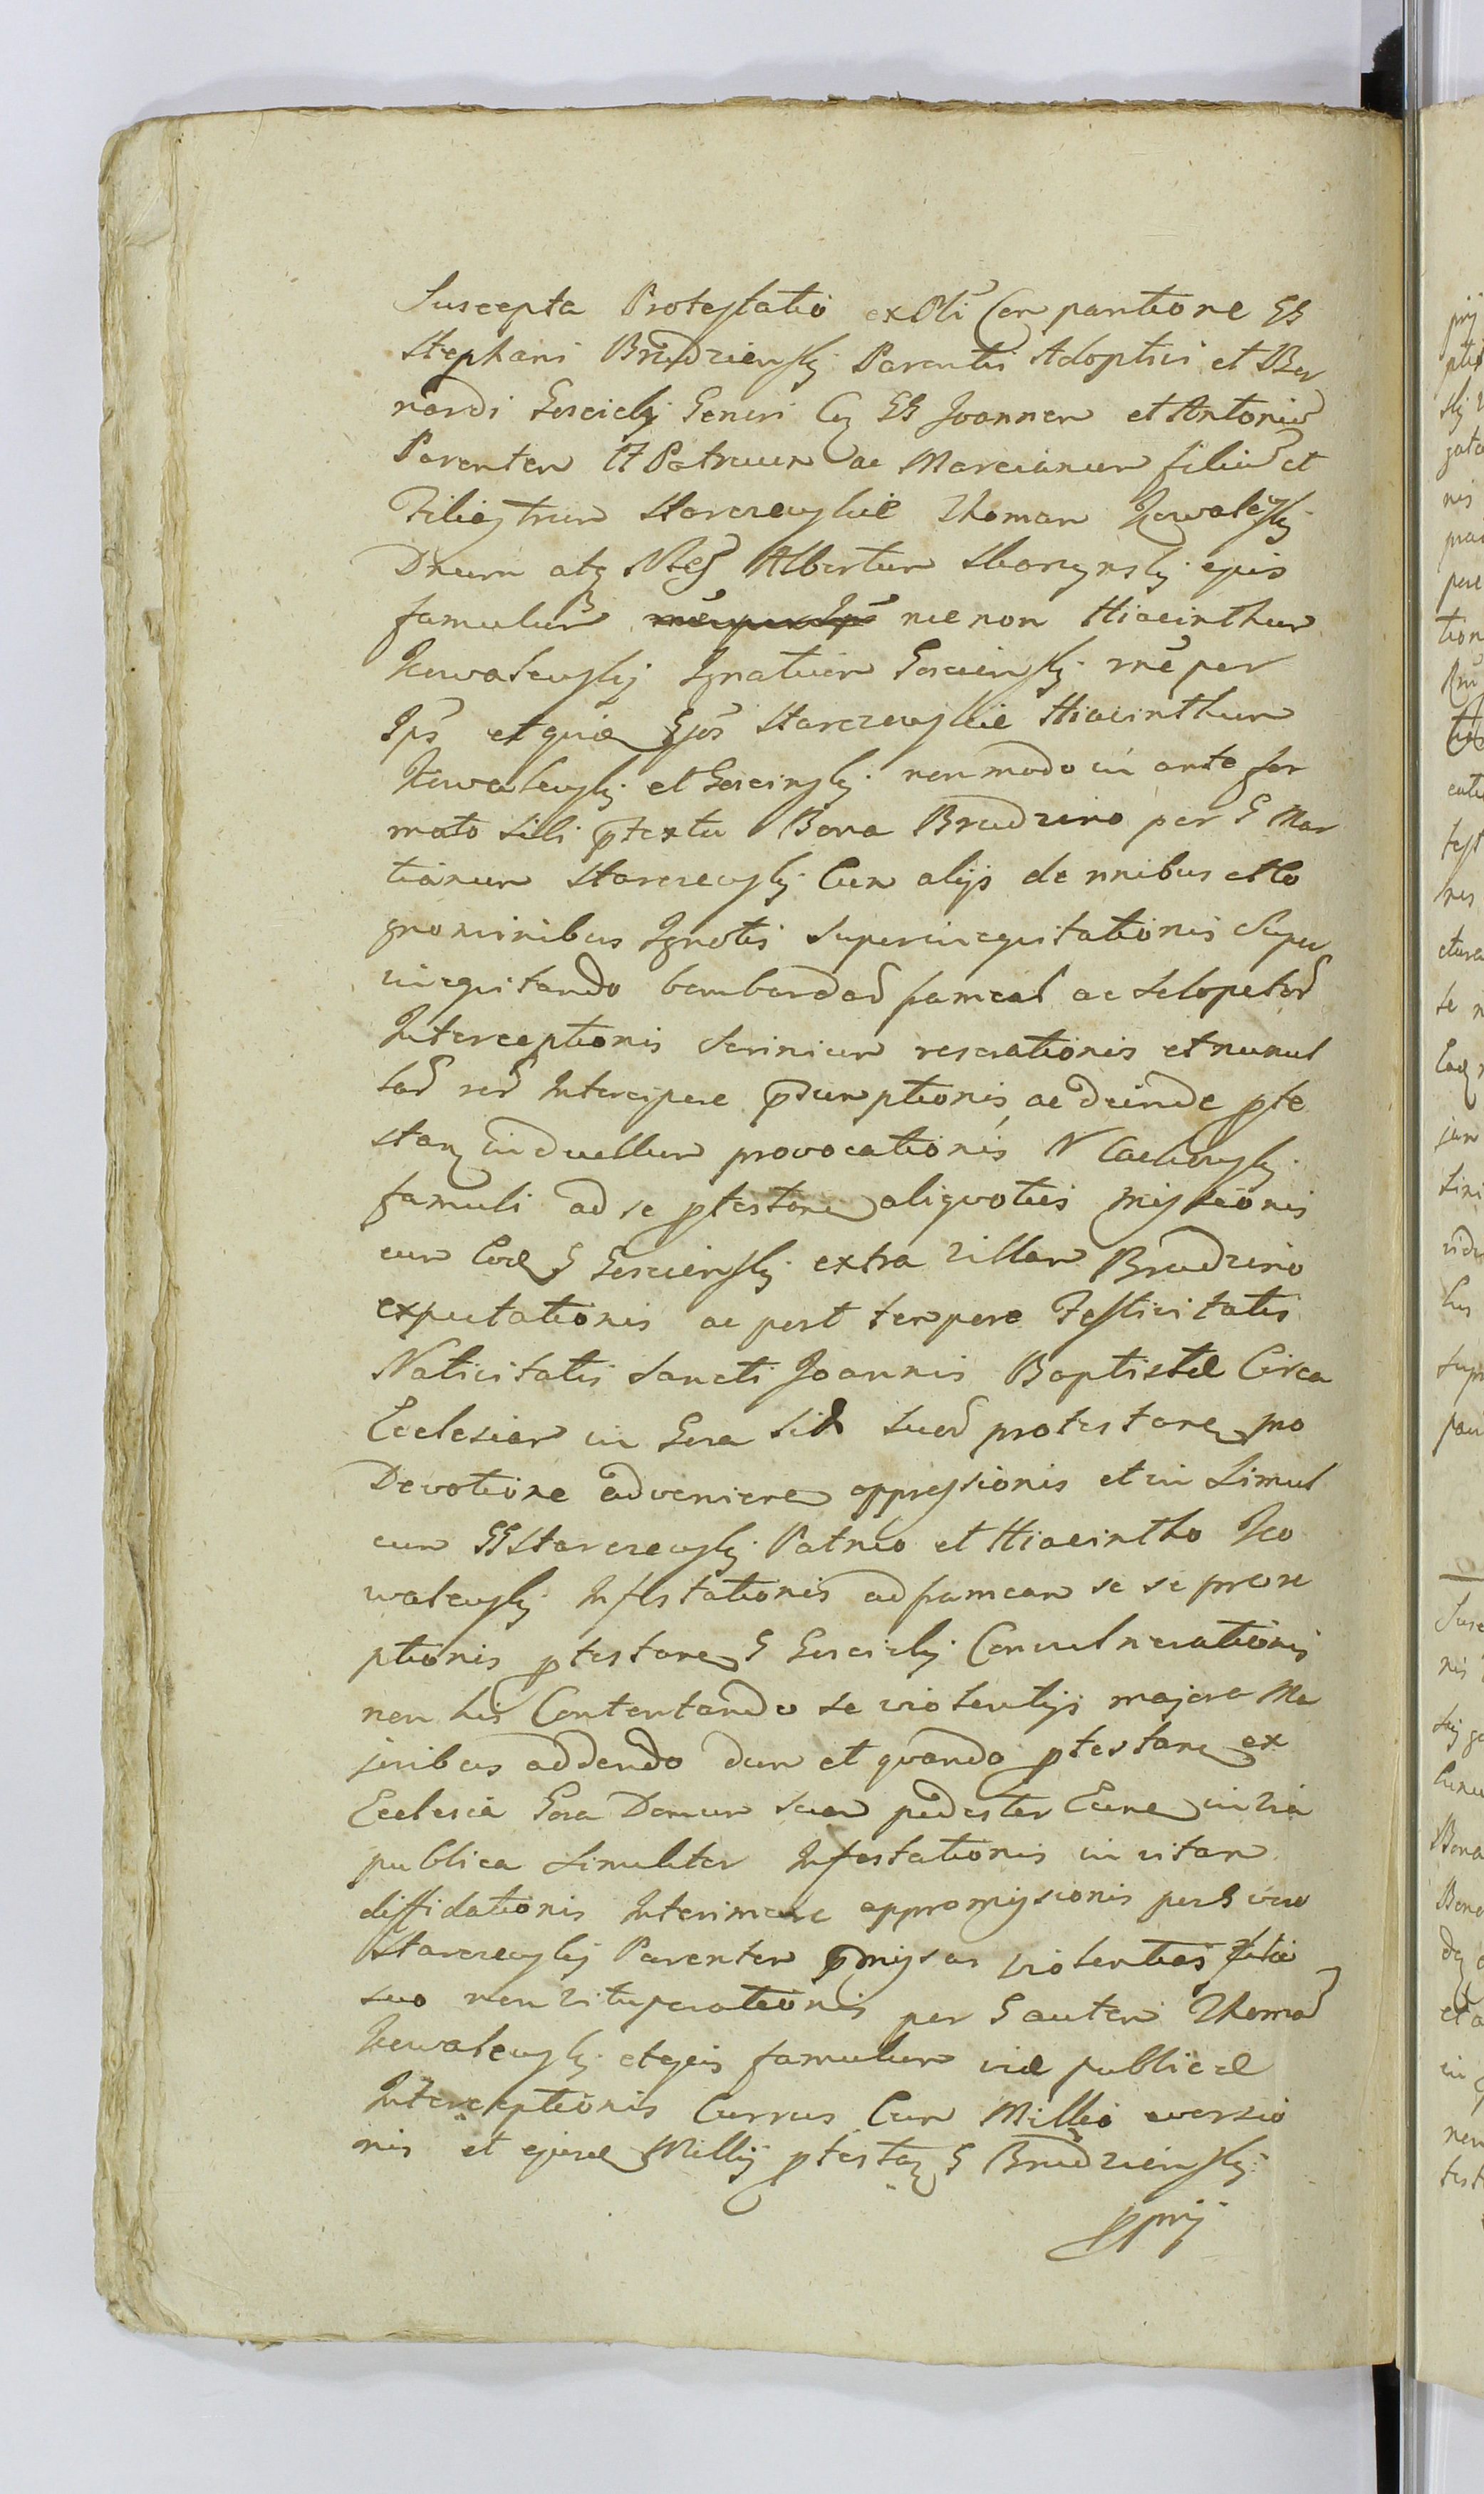 Suscepta Protestatio ex Obli Comparitione GG
Stephani Brudzienskj Parentis Adoptivi et Ber
nardi Goscickj Generi Cq GG Joannem et Antoniu
Parentem Patruum ac Marcianum filiu et
Filiastrum Starczewskie Thomam Kowalewskj
Dnum atq Albertum ejus
famulum nec non Hiacinthum
Kowalewskj Ignatium Goscienskj rne per
Ips et quia Gsos Starczewskie Hiacinthum
Kowalewskj et Goscinskj non modo in ante for
mato sibi ptextu Bona Brudzino per G Mar
tianum Starczewskj Cum alijs de nnibus et Co
gnominibus Ignotis superinequitationis Super
inequitando bombardas fameas ac selopetas
Interceptionis scrinium reserationis et nunul
las res Intercipere psumptionis ac deinde pte
stan in duellum provocationis N
famuli ad se ptestane aliquoties missionis
cum Eod G Goscienskj extra villam Brudzino
expectationis ac post tempore Festivitatis
Nativitatis Sancti Joannis Baptistæ Circa
Ecclesiam in Gora sub suas protestane pro
Devotione advenire oppressionis et in Simul
cum GG Starczewskj Patruo et Hiacintho Ko
walewskj Infestationis ad fameam se se prom
ptionis ptestane G Goscickj Convulnerationis
non his Contentando se violentijs majora Ma
joribus addendo dum et quando ptestane ex
Ecclesia Gora Domum suam pedester Eune in via
publica similiter Infestationis in vitam
diffidationis Interimere appromissionis per G vero
Starczewskj Parentem pmissas violentias filio
suo non vituperationis per G autem Thoma
Kowalewskj et ejus famulum viæ publicæ
Interceptionis Currus Cum Millio eversio
nis et ejusd Millij ptestan G Brudzienskj
pprij